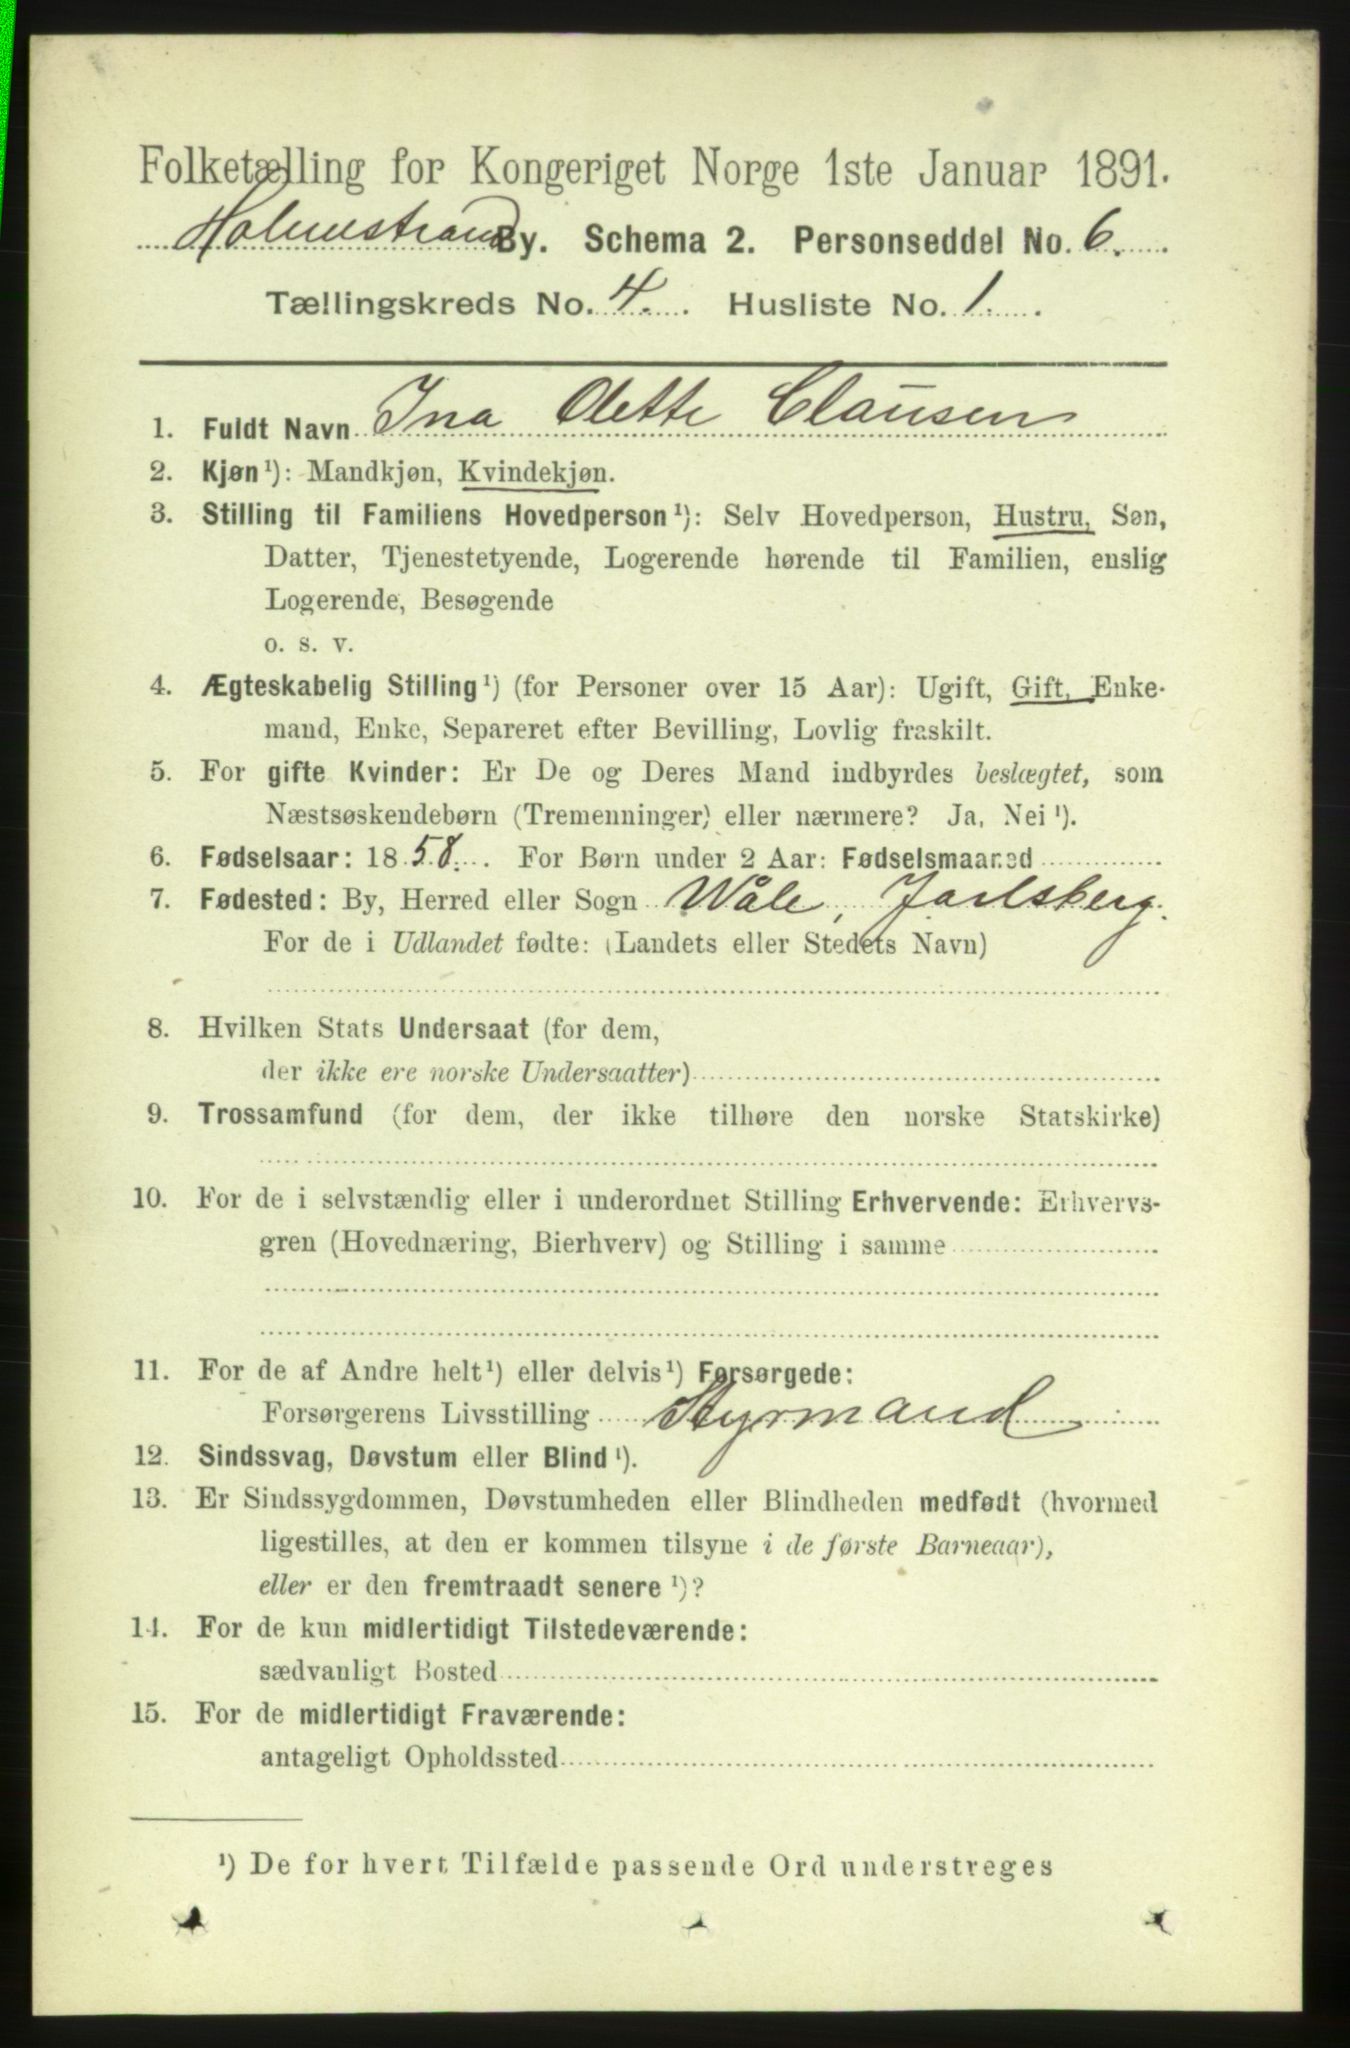 Folketælling for Kongeriget Norge 1ste Januar 1891.
Holmestrand By. Schema 2. Personseddel No. 6.
Tællingskreds No. 4. Husliste No. 1.
1. Fuldt Navn Ina Olette Clausen
2. Kjøn¹): Mandkjøn, Kvindekjøn.
3. Stilling til Familiens Hovedperson¹): Selv Hovedperson, Hustru, Søn,
Datter, Tjenestetyende, Logerende hørende til Familien, enslig
Logerende, Besøgende
o. s. v.
4. Ægteskabelig Stilling¹) (for Personer over 15 Aar): Ugift, Gift, Enke-
mand, Enke, Separeret efter Bevilling, Lovlig fraskilt.
5. For gifte Kvinder: Er De og Deres Mand indbyrdes beslægtet, som
Næstsøskendebørn (Tremenninger) eller nærmere? Ja, Nei¹).
6. Fødselsaar: 1858. For Børn under 2 Aar: Fødselsmaaned
7. Fødested: By, Herred eller Sogn Wåle, Jarlsberg.
For de i Udlandet fødte: (Landets eller Stedets Navn)
8. Hvilken Stats Undersaat (for dem,
der ikke ere norske Undersaatter)
9. Trossamfund (for dem, der ikke tilhøre den norske Statskirke)
10. For de i selvstændig eller i underordnet Stilling Erhvervende: Erhvervs-
gren (Hovednæring, Bierhverv) og Stilling i samme
11. For de af Andre helt¹) eller delvis¹) Forsørgede:
Forsørgerens Livsstilling Styrmand
12. Sindssvag, Døvstum eller Blind¹).
13. Er Sindssygdommen, Døvstumheden eller Blindheden medfødt (hvormed
ligestilles, at den er kommen tilsyne i de første Barneaar),
eller er den fremtraadt senere¹)?
14. For de kun midlertidigt Tilstedeværende:
sædvanligt Bosted
15. For de midlertidigt Fraværende:
antageligt Opholdssted
¹) De for hvert Tilfælde passende Ord understreges